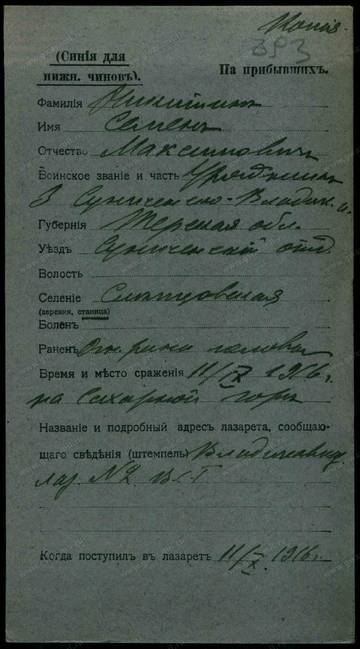 Копія
(Синія для
нижн. чиновъ).
На прибывшихъ.
Фамилія Никитинъ
Имя Семенъ
Отчество Максимовичъ
Воинское званіе и часть Урядникъ
3 Сунженско-Владик. п.
Губернія Терская обл.
Уѣздъ Сунженскій отд.
Волость
Селеніе Слѣпцовская
(деревня, станица)
Боленъ
Раненъ Огн. рана головы
Время и мѣсто сраженія 11/IX 1916 г.
на Сахарной горѣ
Названіе и подробный адресъ лазарета, сообщаю-
щаго свѣдѣнія (штемпель) Владикавказ.
лаз. №2 В.С.Г.
Когда поступилъ въ лазаретъ 11/X 1916 г.